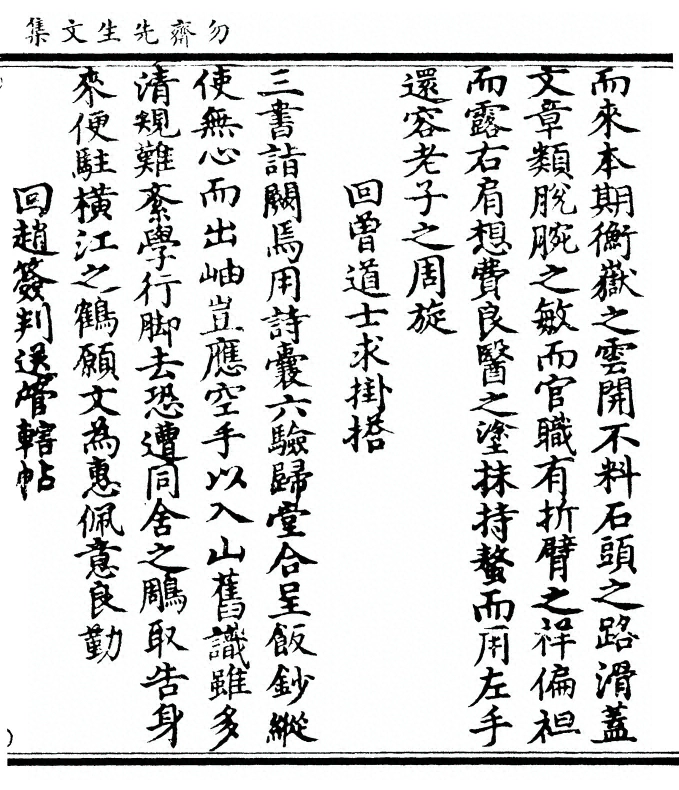 勿齋先生文集
而來本期衡嶽之雲開不料石頭之路滑蓋
文章類脫腕之敏而官職有折臂之祥偏袒
而露右肩想費良醫之塗抹持螯而用左手
還容老子之周旋
回曾道士求掛搭
三書詣闕焉用詩囊六驗歸堂合呈飯鈔縱
使無心而出岫豈應空手以入山舊識雖多
清規難紊學行脚去恐遭同舍之鵰取告身
來便駐橫江之鶴願文為惠佩意良勤
回趙簽判送管轄帖